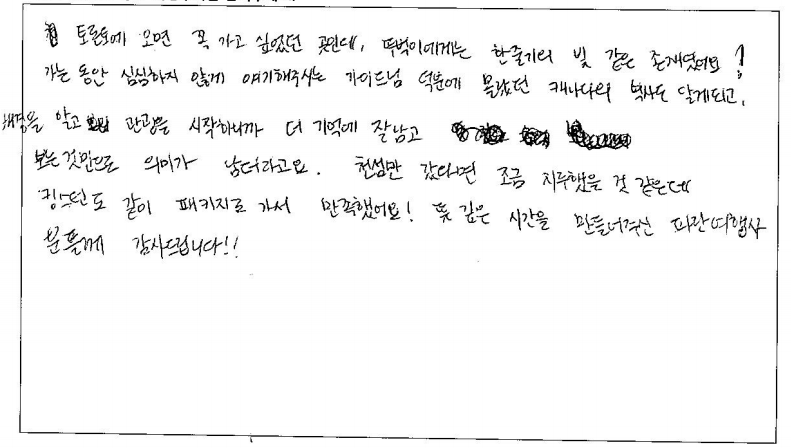 토론토에 오면 꼭 가고 싶었던 곳인데, 뚜벅이에게는 한줄기의 빛 같은 존재였어요!
가는 동안 심심하지 않게 얘기해주시는 가이드님 덕분에 몰랐던 캐나다의 역사도 알게되고,
배경을 알고 관광을 시작하니까 더 기억에 잘남고
보는것만으로 의미가 남더라고요. 천섬만 갔다면 조금 지루했을 것 같은데
킹스턴도 같이 패키지로 가서 만족했어요! 뜻 깊은 시간을 만들어주신 파란여행사
분들께 감사드립니다!!